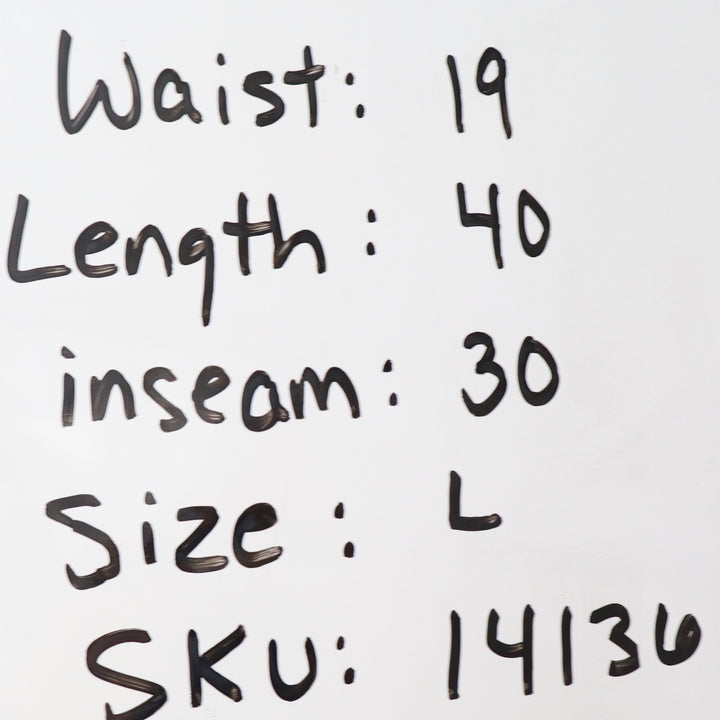 Waist: 19
Length: 40
inseam: 30
Size: L
SKU: 14136